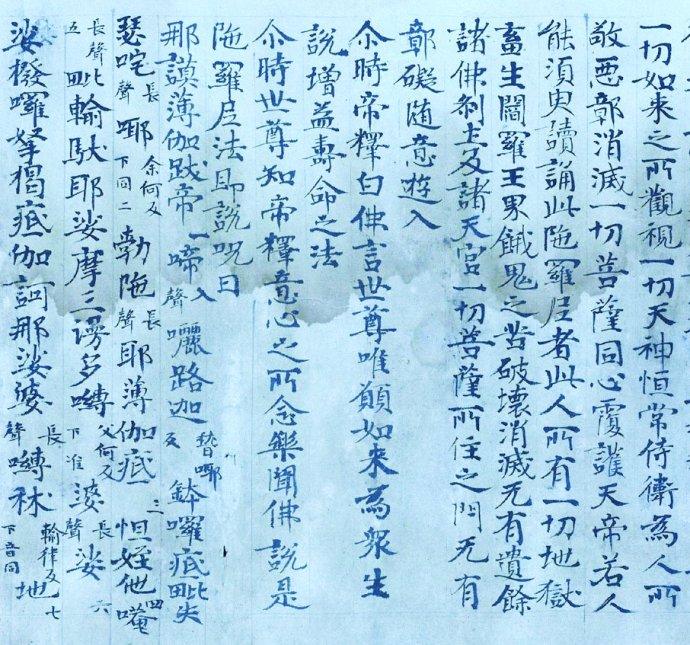 一切如來之所觀視一切天神恒常侍衛為人所
敬惡鄣消滅一切菩薩同心覆護天帝若人
能須臾讀誦此陁羅尼者此人所有一切地獄
畜生閻羅王界餓鬼之苦破壞消滅无有遺餘
諸佛剎土及諸天宮一切菩薩所住之門无有
鄣礙隨意遊入
尒時帝釋白佛言世尊唯願如來為衆生
說增益壽命之法
尒時世尊知帝釋意心之所念樂聞佛說是
陁羅尼法即說呪曰
那謨薄伽跋帝一啼入聲㘑路迦 鉢囉底毗失
瑟咤長聲耶余何反下同二勃陁長聲耶薄伽底三怛姪他四唵
長聲五毗輸馱耶娑摩三謗多嚩父何反下准婆長聲娑六
娑撥囉拏揭底伽訶那娑婆長聲嚩秫輸律反下音同地七